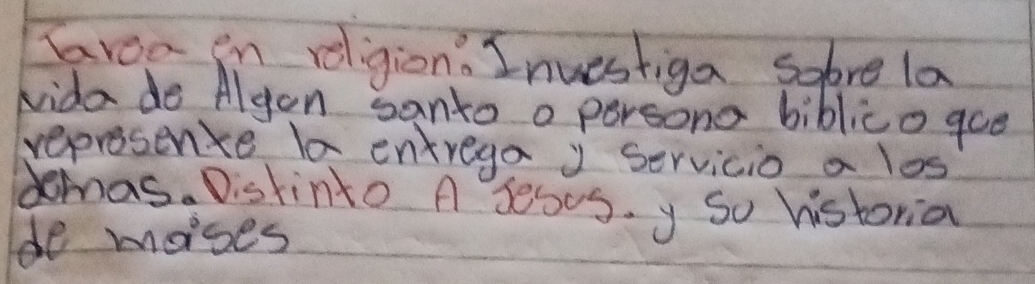 Tarea en religion: Investiga sobre la
vida de Algun santo o persona biblico que
represente la entrega y servicio a los
demas. Distinto A Jesus. y su historia
de moises